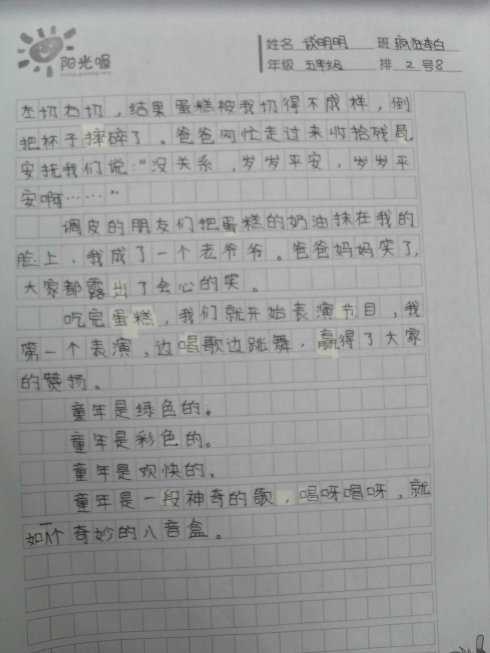 阳光喔
姓名 谈明明 班 疯狂李白
年级 五年级 排 2 号8
左切右切，结果蛋糕被我切得不成样，倒
把杯子摔碎了。爸爸匆忙走过来收拾残局
安抚我们说：“没关系，岁岁平安，岁岁平
安啊……”
调皮的朋友们把蛋糕的奶油抹在我的
脸上，我成了一个老爷爷。爸爸妈妈笑了，
大家都露出了会心的笑。
吃完蛋糕，我们就开始表演节目，我
第一个表演，边唱歌边跳舞，赢得了大家
的赞扬。
童年是绿色的。
童年是彩色的。
童年是欢快的。
童年是一段神奇的歌，唱呀唱呀，就
如一个奇妙的八音盒。